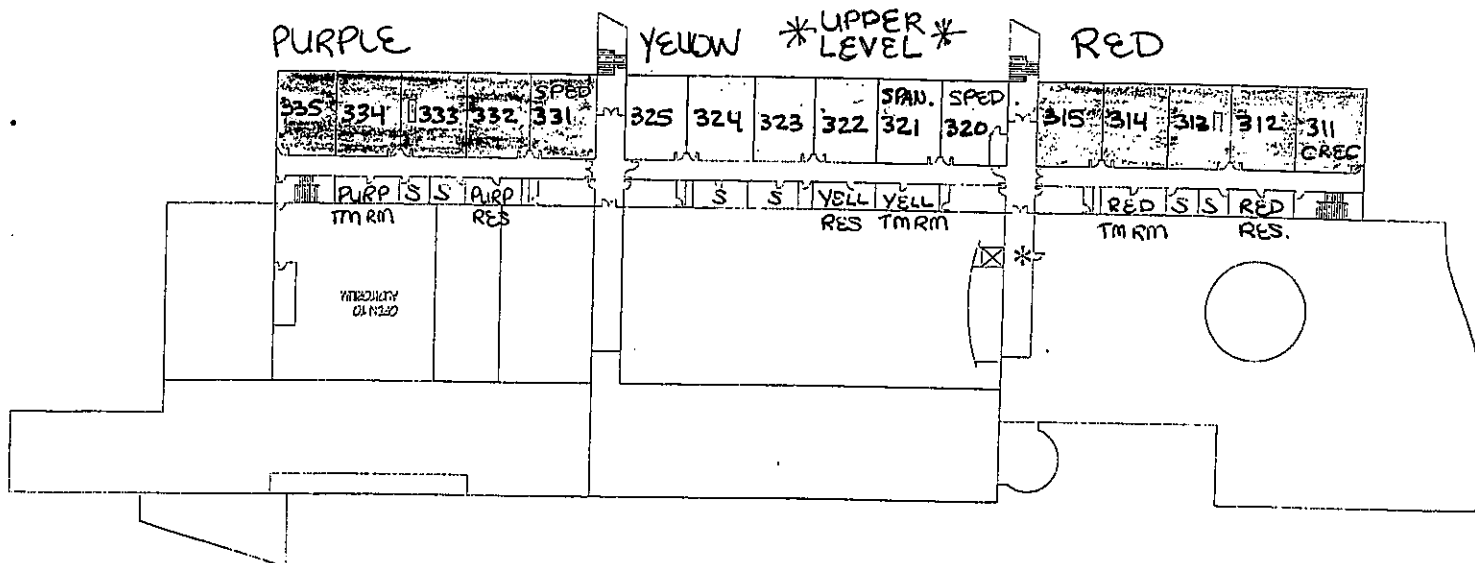 PURPLE YELLOW *UPPER LEVEL* RED
335 334 333 332 SPED 331 325 324 323 322 SPAN. 321 SPED 320 315 314 313 312 311 CREC
PURP S S PURP S S YELL YELL RED S S RED
TM RM RES RES TM RM TM RM RES.
*
OPEN TO
AUDITORIUM